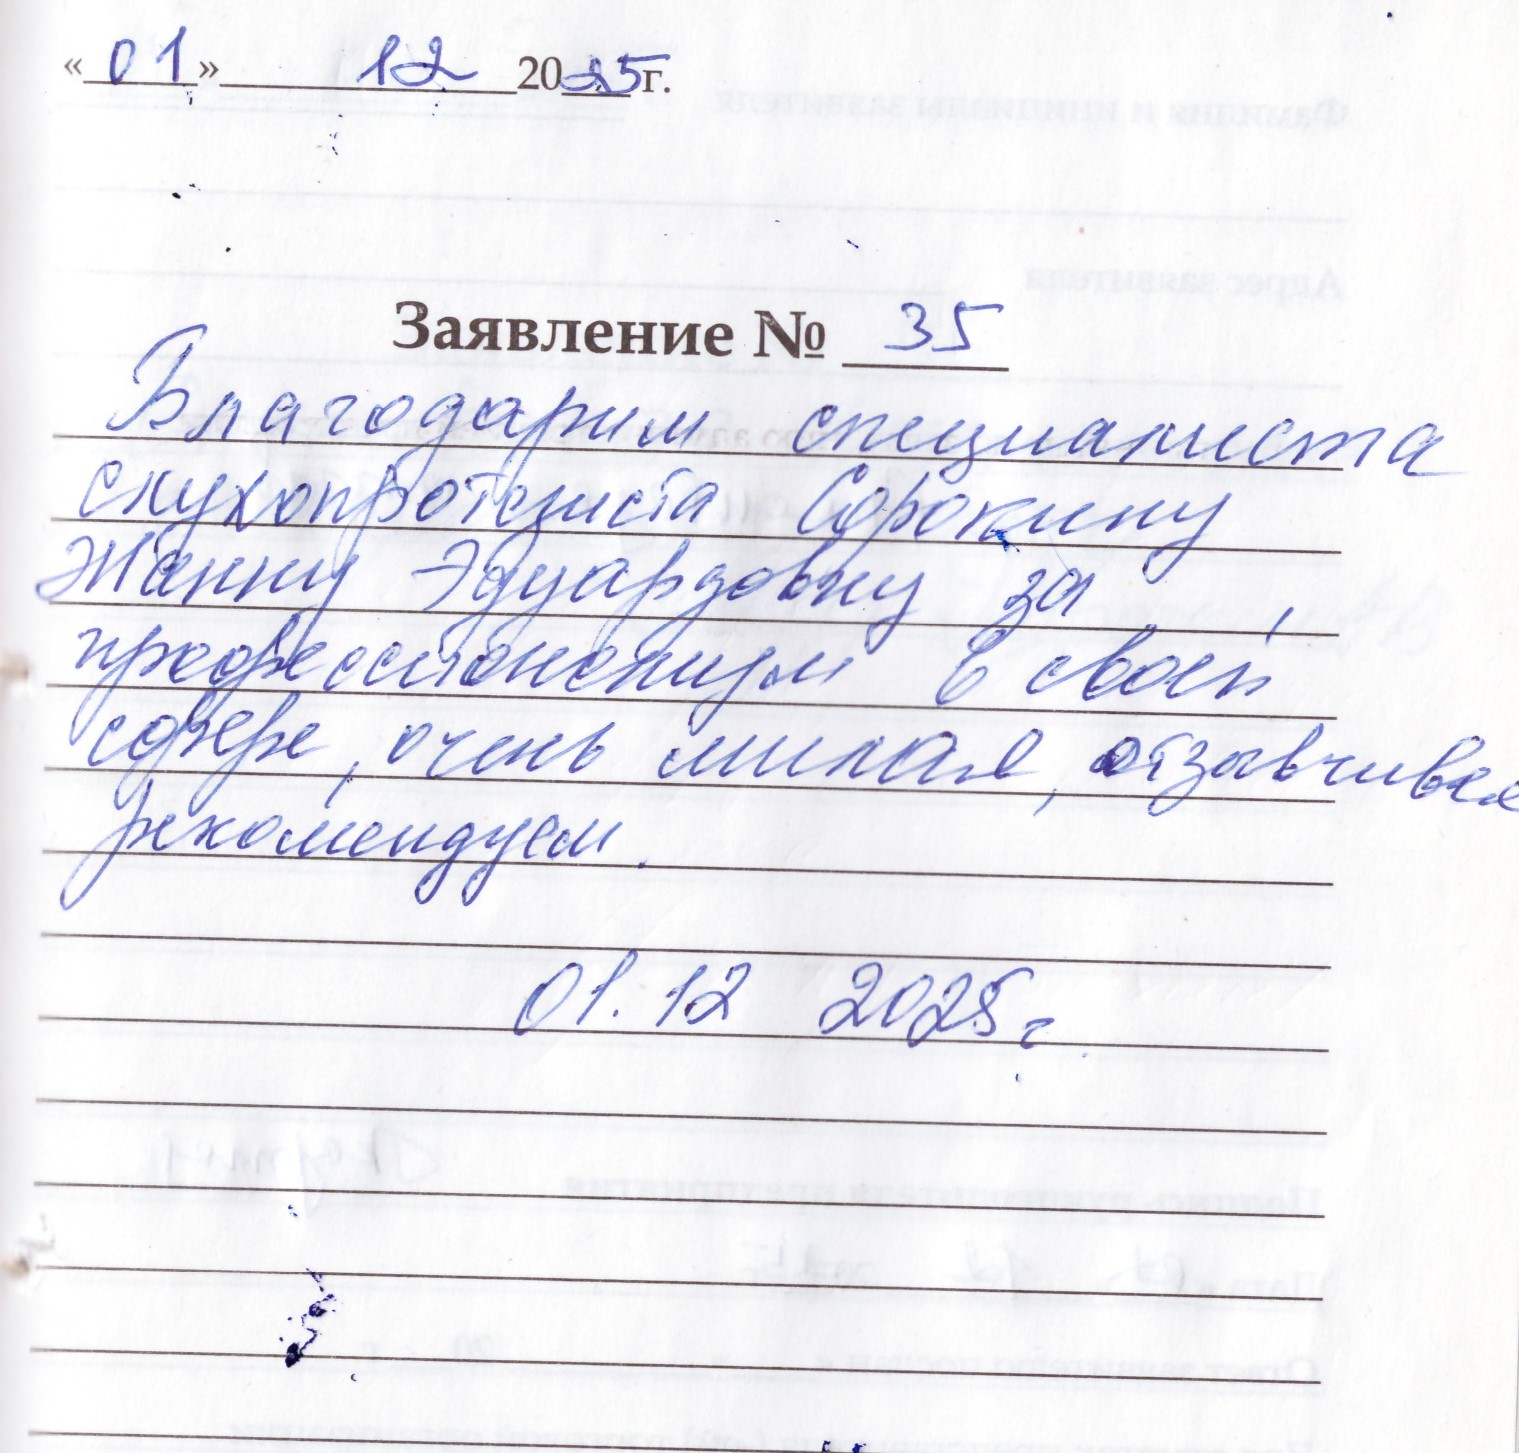 «01» 12 2025г.
Заявление № 35
Благодарим специалиста
слухопротезиста Сорокину
Жанну Эдуардовну за
професстонолизм в своей
сфере, очень милая, отзывчивая
рекомендуем.
01.12 2025г